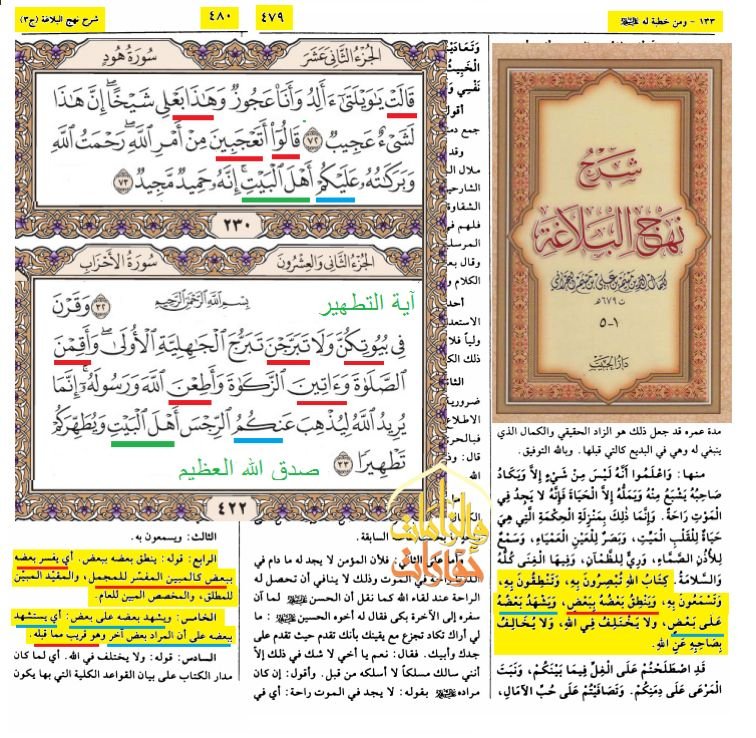 ١٣٣ - ومن خطبة له
٤٧٩
٤٨٠
شرح نهج البلاغة (ج٣)
الجزء الثاني عشر
سورة هود
قَالَتْ يَٰوَيْلَتَىٰٓ ءَأَلِدُ وَأَنَا۠ عَجُوزٌ وَهَٰذَا بَعْلِى شَيْخًا ۖ إِنَّ هَٰذَا
لَشَىْءٌ عَجِيبٌ ٧٢ قَالُوٓا۟ أَتَعْجَبِينَ مِنْ أَمْرِ ٱللَّهِ ۖ رَحْمَتُ ٱللَّهِ
وَبَرَكَٰتُهُۥ عَلَيْكُمْ أَهْلَ ٱلْبَيْتِ ۚ إِنَّهُۥ حَمِيدٌ مَّجِيدٌ ٧٣
٢٣٠
الجزء الثاني والعشرون
سورة الأحزاب
آية التطهير
بِسْمِ ٱللَّهِ ٱلرَّحْمَٰنِ ٱلرَّحِيمِ
٣٢ وَقَرْنَ
فِى بُيُوتِكُنَّ وَلَا تَبَرَّجْنَ تَبَرُّجَ ٱلْجَٰهِلِيَّةِ ٱلْأُولَىٰ ۖ وَأَقِمْنَ
ٱلصَّلَوٰةَ وَءَاتِينَ ٱلزَّكَوٰةَ وَأَطِعْنَ ٱللَّهَ وَرَسُولَهُۥٓ ۚ إِنَّمَا
يُرِيدُ ٱللَّهُ لِيُذْهِبَ عَنكُمُ ٱلرِّجْسَ أَهْلَ ٱلْبَيْتِ وَيُطَهِّرَكُمْ
تَطْهِيرًا ٣٣
صدق الله العظيم
٤٢٢
شرح
نهج البلاغة
ت ٦٧٩هـ
١-٥
مدة عمره قد جعل ذلك هو الزاد الحقيقي والكمال الذي
ينبغي له وهي في البديع كالتي قبلها. وبالله التوفيق.
منها: وَاعْلَمُوا أَنَّهُ لَيْسَ مِنْ شَيْءٍ إِلَّا وَيَكَادُ
صَاحِبُهُ يَشْبَعُ مِنْهُ وَيَمَلُّهُ إِلَّا الْحَيَاةَ فَإِنَّهُ لَا يَجِدُ فِي
الْمَوْتِ رَاحَةً. وَإِنَّمَا ذلِكَ بِمَنْزِلَةِ الْحِكْمَةِ الَّتِي هِيَ
حَيَاةٌ لِلْقَلْبِ الْمَيِّتِ، وَبَصَرٌ لِلْعَيْنِ الْعَمْيَاءِ، وَسَمْعٌ
لِلْأُذُنِ الصَّمَّاءِ، وَرِيٌّ لِلظَّمْآنِ، وَفِيهَا الْغِنَى كُلُّهُ
وَالسَّلَامَةُ. كِتَابُ اللهِ تُبْصِرُونَ بِهِ، وَتَنْطِقُونَ بِهِ،
وَتَسْمَعُونَ بِهِ، وَيَنْطِقُ بَعْضُهُ بِبَعْضٍ، وَيَشْهَدُ بَعْضُهُ
عَلَى بَعْضٍ، ولا يَخْتَلِفُ فِي اللهِ، وَلَا يُخَالِفُ
بِصَاحِبِهِ عَنِ اللهِ.
قَدِ اصْطَلَحْتُمْ عَلَى الْغِلِّ فِيمَا بَيْنَكُمْ، وَنَبَتَ
الْمَرْعَى عَلَى دِمَنِكُمْ. وَتَصَافَيْتُمْ عَلَى حُبِّ الْآمَالِ،
السابقة.
فلأن المؤمن لا يجد له ما دام في
راحة في الموت وذلك لا ينافي أن تحصل له
الراحة عند لقاء الله كما نقل أن الحسن لما آن
سفره إلى الآخرة بكى فقال له أخوه الحسين
لي أراك تكاد تجزع مع يقينك بأنك تقدم حيث تقدم على
جدك وأبيك. فقال: نعم يا أخي لا شك في ذلك إلّا
أنني سالك مسلكاً لم أسلكه من قبل. وأقول: إن كان
مراده بقوله: لا يجد في الموت راحة: أي في
الثالث: ويسمعون به.
الرابع: قوله: ينطق بعضه ببعض: أي يفسر بعضه
ببعض كالمبين المفسّر للمجمل، والمقيّد المبين
للمطلق، والمخصص المبين للعام.
الخامس: ويشهد بعضه على بعض: أي يستشهد
ببعضه على أن المراد بعض آخر وهو قريب مما قبله.
السادس: قوله: ولا يختلف في الله. أي لما كان
مدار الكتاب على بيان القواعد الكلية التي بها يكون